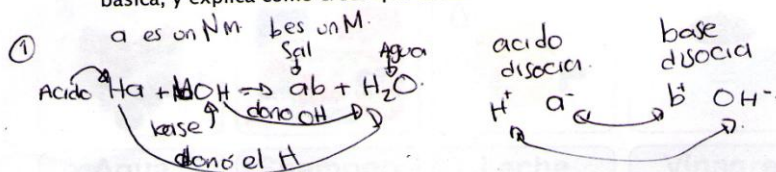 básica, y explica como
a es un NM b es un M.
① Sal Agua
Acido Ha + bOH → ab + H₂O.
base dono OH
donó el H
acido disocia. base disocia
H⁺ a⁻ b⁺ OH⁻